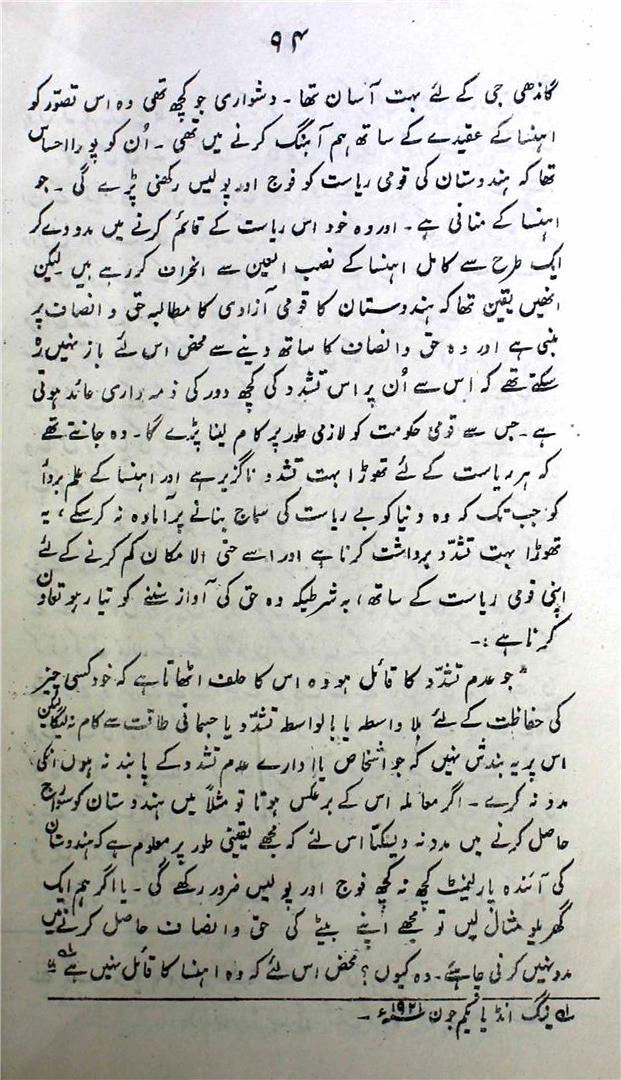 ۹۴
گاندھی جی کے لئے بہت آسان تھا ۔ دشواری جو کچھ تھی وہ اس تصوّر کو
اہنسا کے عقیدے کے ساتھ ہم آہنگ کرنے میں تھی ۔ اُن کو پورا احساس
تھا کہ ہندوستان کی قومی ریاست کو فوج اور پولیس رکھنی پڑے گی ۔ جو
اہنسا کے منافی ہے ۔ اور وہ خود اس ریاست کے قائم کرنے میں مدد دے کر
ایک طرح سے کامل اہنسا کے نصب العین سے انحراف کر رہے ہیں لیکن
انھیں یقین تھا کہ ہندوستان کا قومی آزادی کا مطالبہ حق و انصاف پر
مبنی ہے اور وہ حق و انصاف کا ساتھ دینے سے محض اس لئے باز نہیں رہ
سکتے تھے کہ اس سے اُن پر اس تشدد کی کچھ دور کی ذمہ داری عائد ہوتی
ہے ۔ جس سے قومی حکومت کو لازمی طور پر کام لینا پڑے گا ۔ وہ جانتے تھے
کہ ہر ریاست کے لئے تھوڑا بہت تشدد ناگزیر ہے اور اہنسا کے علم بردار
کو جب تک کہ وہ دنیا کو بے ریاست کی سماج بنانے پر آمادہ نہ کر سکے ، یہ
تھوڑا بہت تشدّد برداشت کرنا ہے اور اسے حتی الامکان کم کرنے کے لئے
اپنی قومی ریاست کے ساتھ ، بہ شرطیکہ وہ حق کی آواز سننے کو تیار ہو تعاون
کرنا ہے :۔
" جو عدم تشدّد کا قائل ہو وہ اس کا حلف اٹھاتا ہے کہ خود کسی چیز
کی حفاظت کے لئے بلا واسطہ یا بالواسطہ تشدّد یا جسمانی طاقت سے کام نہ لیگا لیکن
اس پر یہ بندش نہیں کہ جو اشخاص یا ادارے عدم تشدد کے پابند نہ ہوں انکی
مدد نہ کرے ۔ اگر معاملہ اس کے برعکس ہوتا تو مثلاً میں ہندوستان کو سوراج
حاصل کرنے میں مدد نہ دیسکتا اس لئے کہ مجھے یقینی طور پر معلوم ہے کہ ہندوستان
کی آئندہ پارلیمنٹ کچھ نہ کچھ فوج اور پولیس ضرور رکھے گی ۔ یا اگر ہم ایک
گھریلو مثال لیں تو مجھے اپنے بیٹے کی حق و انصاف حاصل کرنے میں
مدد نہیں کرنی چاہئے ۔ وہ کیوں ؟ محض اس لئے کہ وہ اہنسا کا قائل نہیں ہے ؂۱ "
؂۱ ینگ انڈیا یکم جون ۱۹۲۱ء ۔